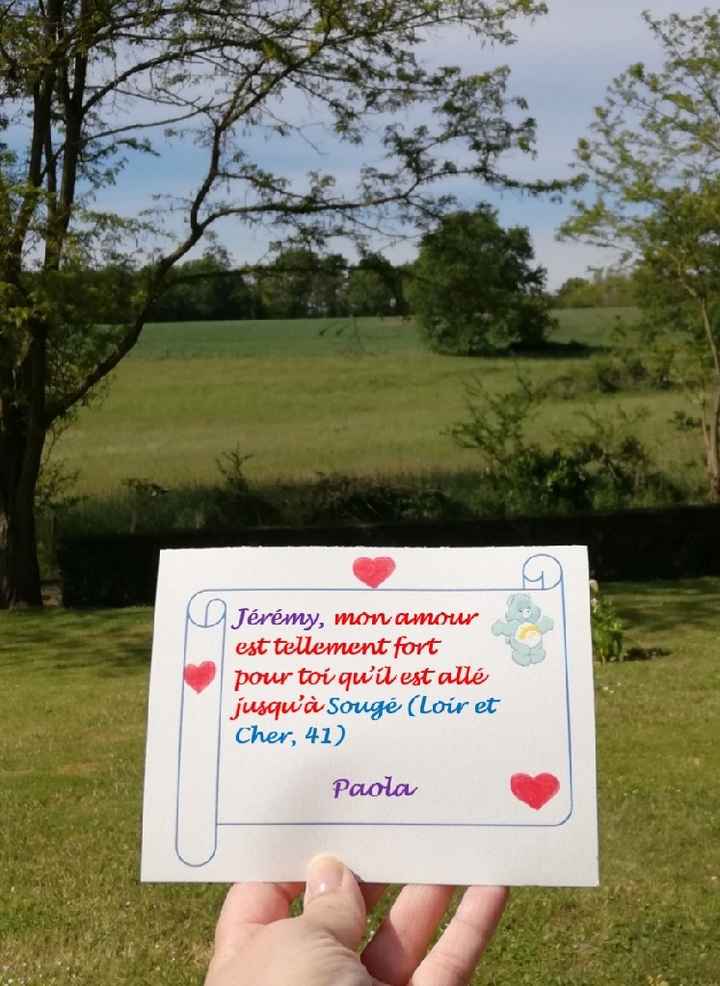 Jérémy, mon amour
est tellement fort
pour toi qu'il est allé
jusqu'à Sougé (Loir et
Cher, 41)
Paola